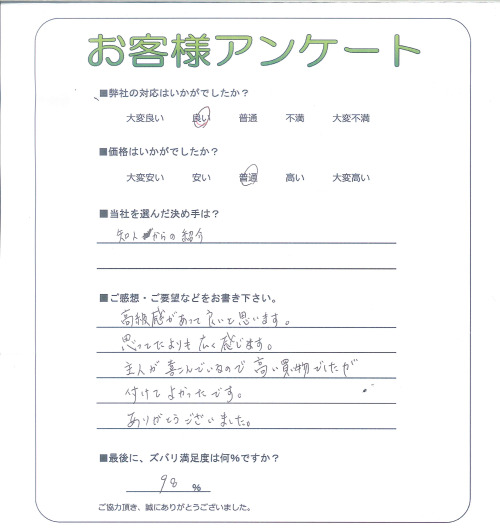 お客様アンケート
■弊社の対応はいかがでしたか？
大変良い 良い 普通 不満 大変不満
■価格はいかがでしたか？
大変安い 安い 普通 高い 大変高い
■当社を選んだ決め手は？
知人からの紹介
■ご感想・ご要望などをお書き下さい。
高級感があって良いと思います。
思ってたよりも広く感じます。
主人が喜んでいるので高い買物でしたが
付けてよかったです。
ありがとうございました。
■最後に、ズバリ満足度は何％ですか？
98 ％
ご協力頂き、誠にありがとうございました。